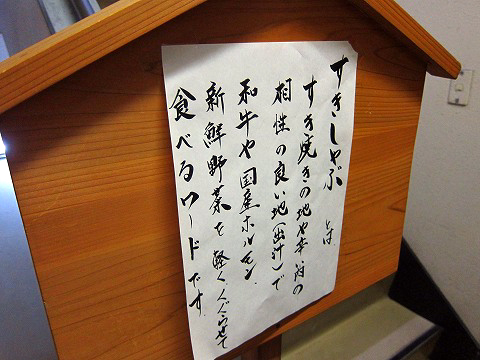 すきしゃぶ とは
すき焼きの地や幸福の
相性の良い地(出汁)で
和牛や国産ホルモン
新鮮野菜を軽くくぐらせて
食べるフードです